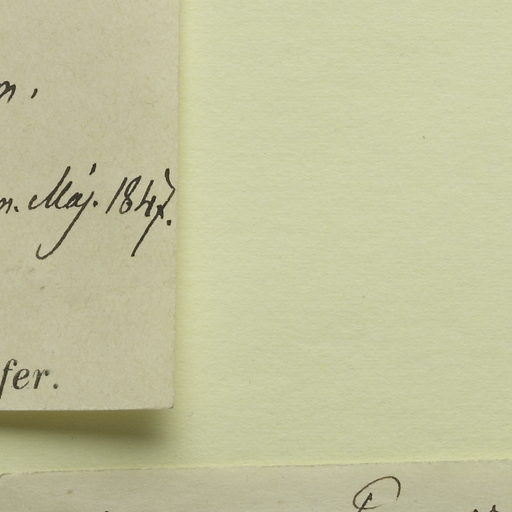 n. Maj. 1847.
fer.